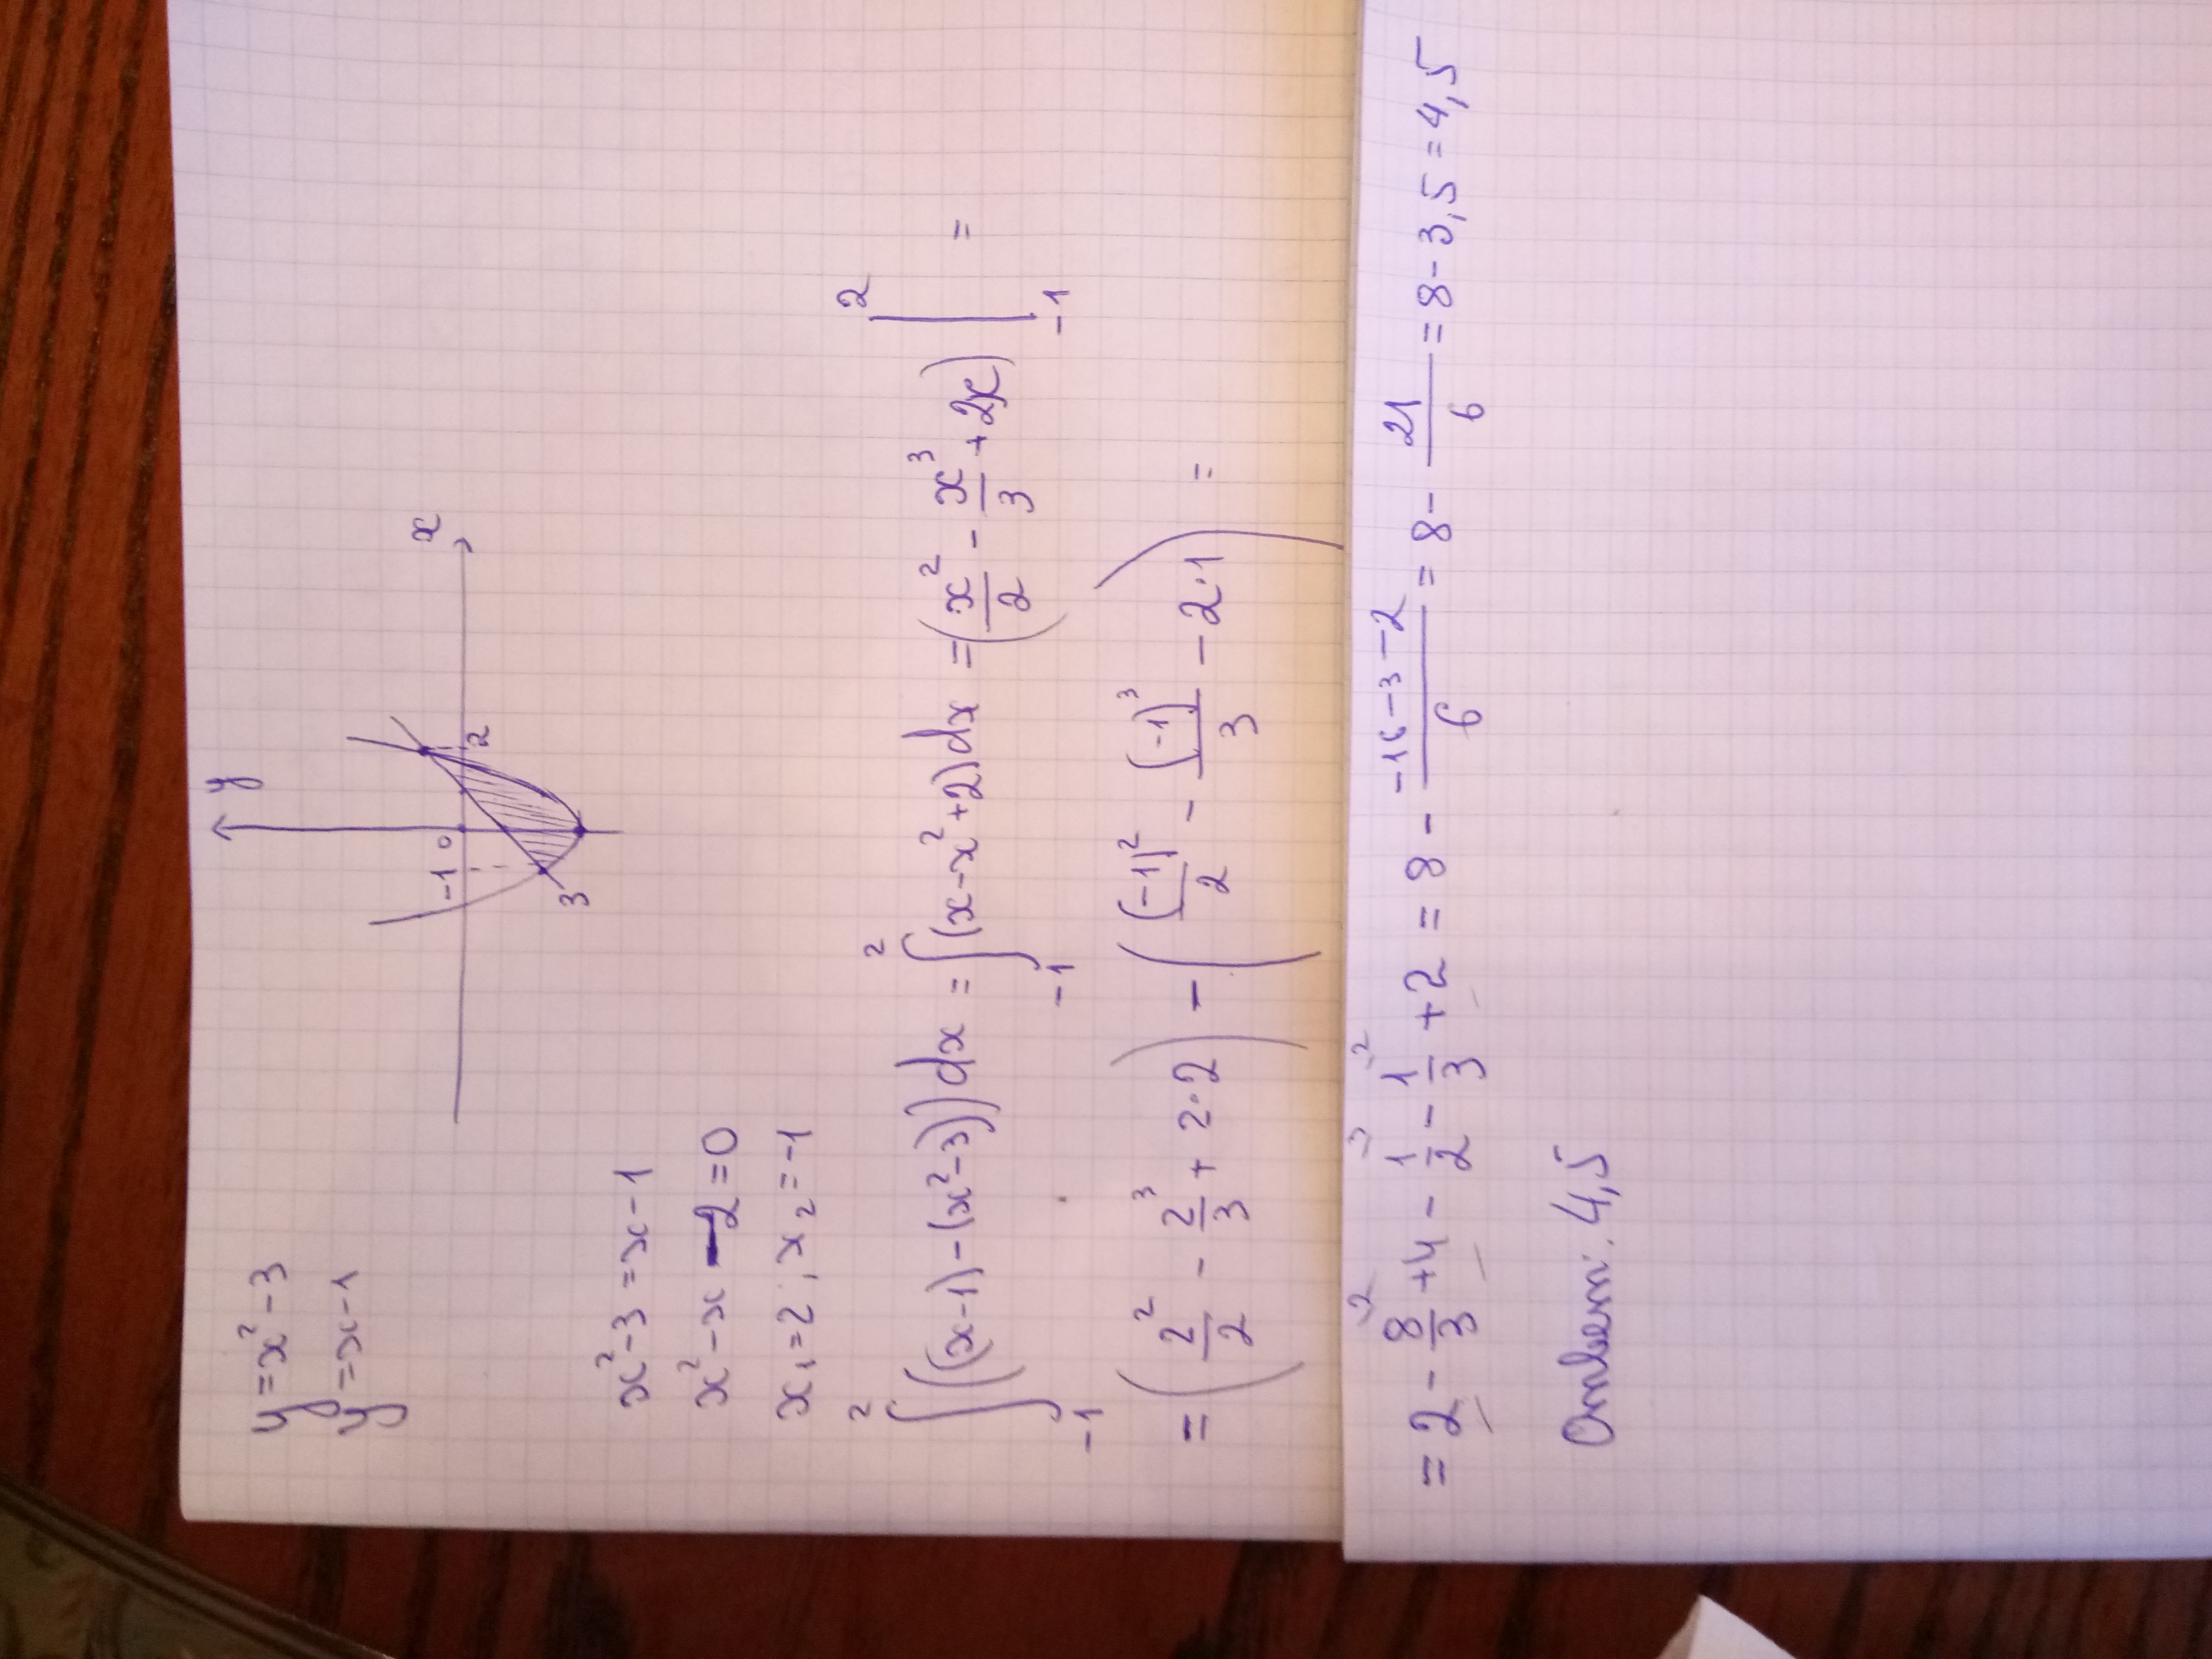 y=x²-3
y=x-1
y
x
-1 0 2
3
x²-3=x-1
x²-x-2=0
x₁=2, x₂=-1
∫₋₁² ((x-1)-(x²-3))dx = ∫₋₁² (x-x²+2)dx = (x²/2 - x³/3 + 2x) |₋₁² =
= (2²/2 - 2³/3 + 2·2) - ((-1)²/2 - (-1)³/3 - 2·1) =
= 2 - 8/3 + 4 - 1/2 - 1/3 + 2 = 8 - (-16-3-2)/6 = 8 - 21/6 = 8-3,5=4,5
Ответ: 4,5